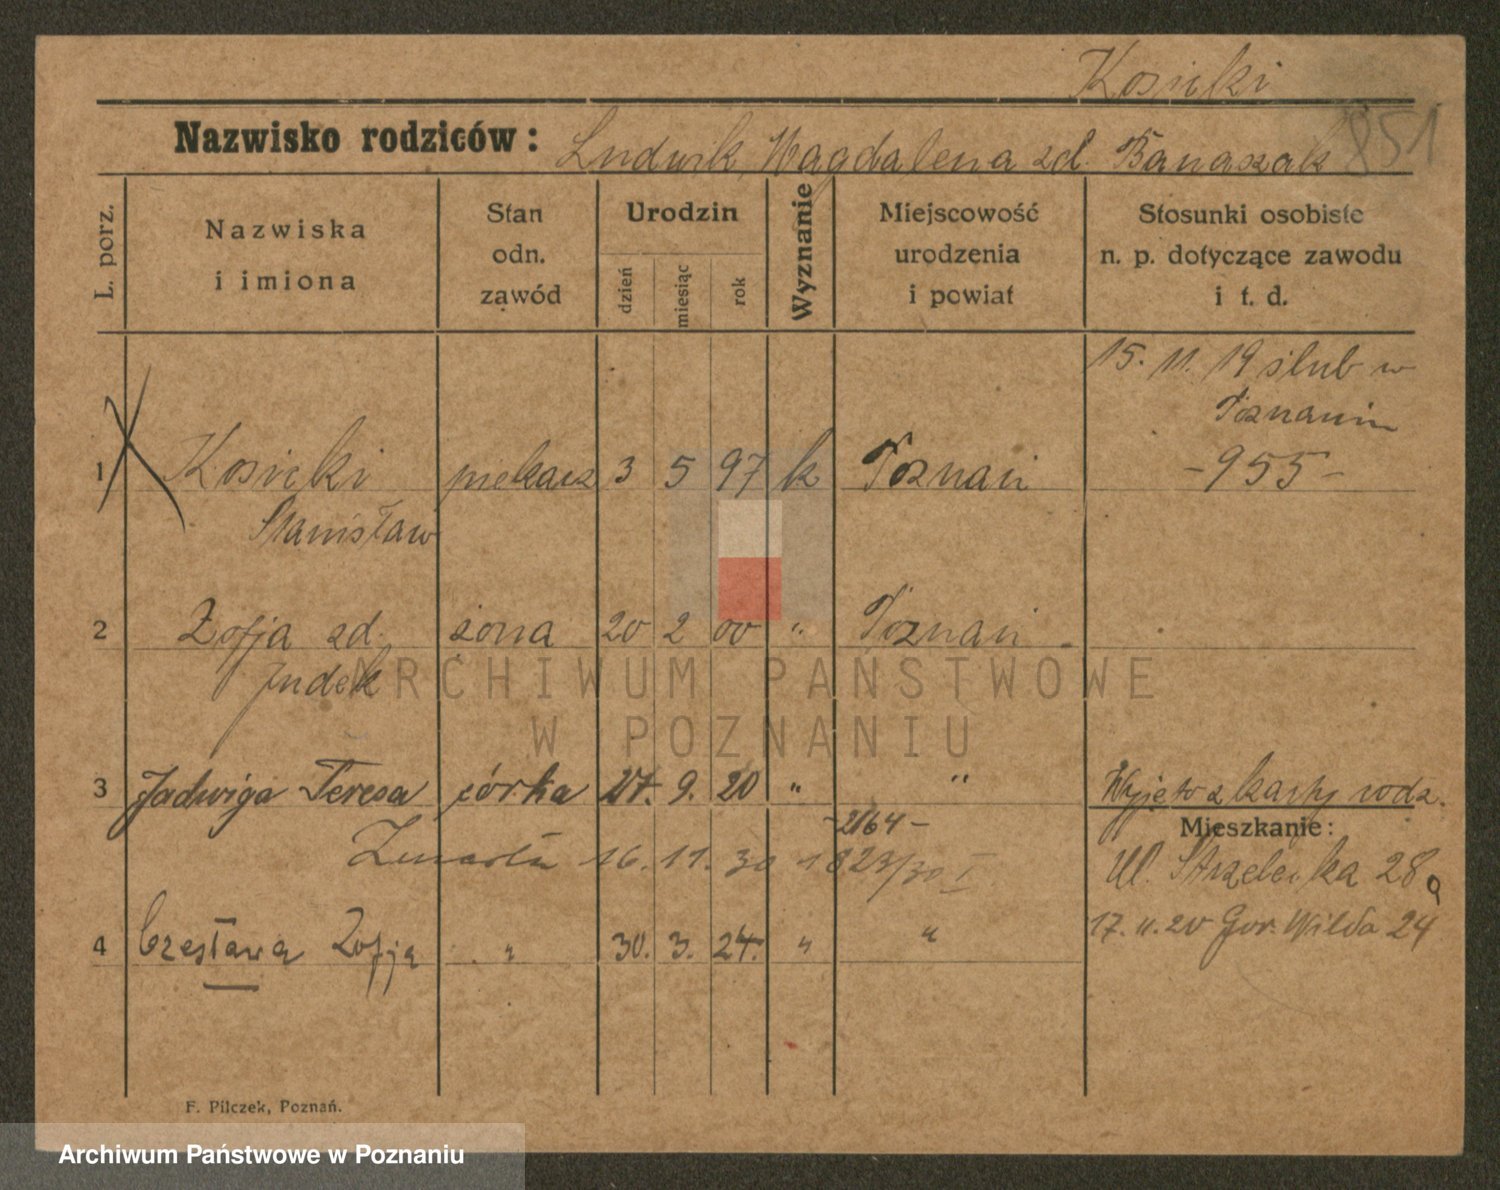 Kosicki
851
Nazwisko rodziców: Ludwik, Magdalena zd. Banaszak
L. porz.
Nazwiska i imiona
Stan odn. zawód
Urodzin
dzień
miesiąc
rok
Wyznanie
Miejscowość urodzenia i powiat
Stosunki osobiste n. p. dotyczące zawodu i t. d.
15. 11. 19 ślub w
Poznaniu
1 Kosicki piekarz 3 5 97 k Poznań - 955 -
Stanisław
2 Zofja zd. żona 20 2 00 " Poznań
Judek
ARCHIWUM PAŃSTWOWE
W POZNANIU
3 Jadwiga Teresa córka 27. 9. 20 " " Wyjęto z karty rodz.
- 2164 -
Mieszkanie:
Zmarła 16. 11. 30 1823/30 I
Ul. Strzelecka 28a
17. 11. 20 Gór. Wilda 24
4 Czesława Zofja " 30. 3. 24. " "
F. Pilczek, Poznań.
Archiwum Państwowe w Poznaniu